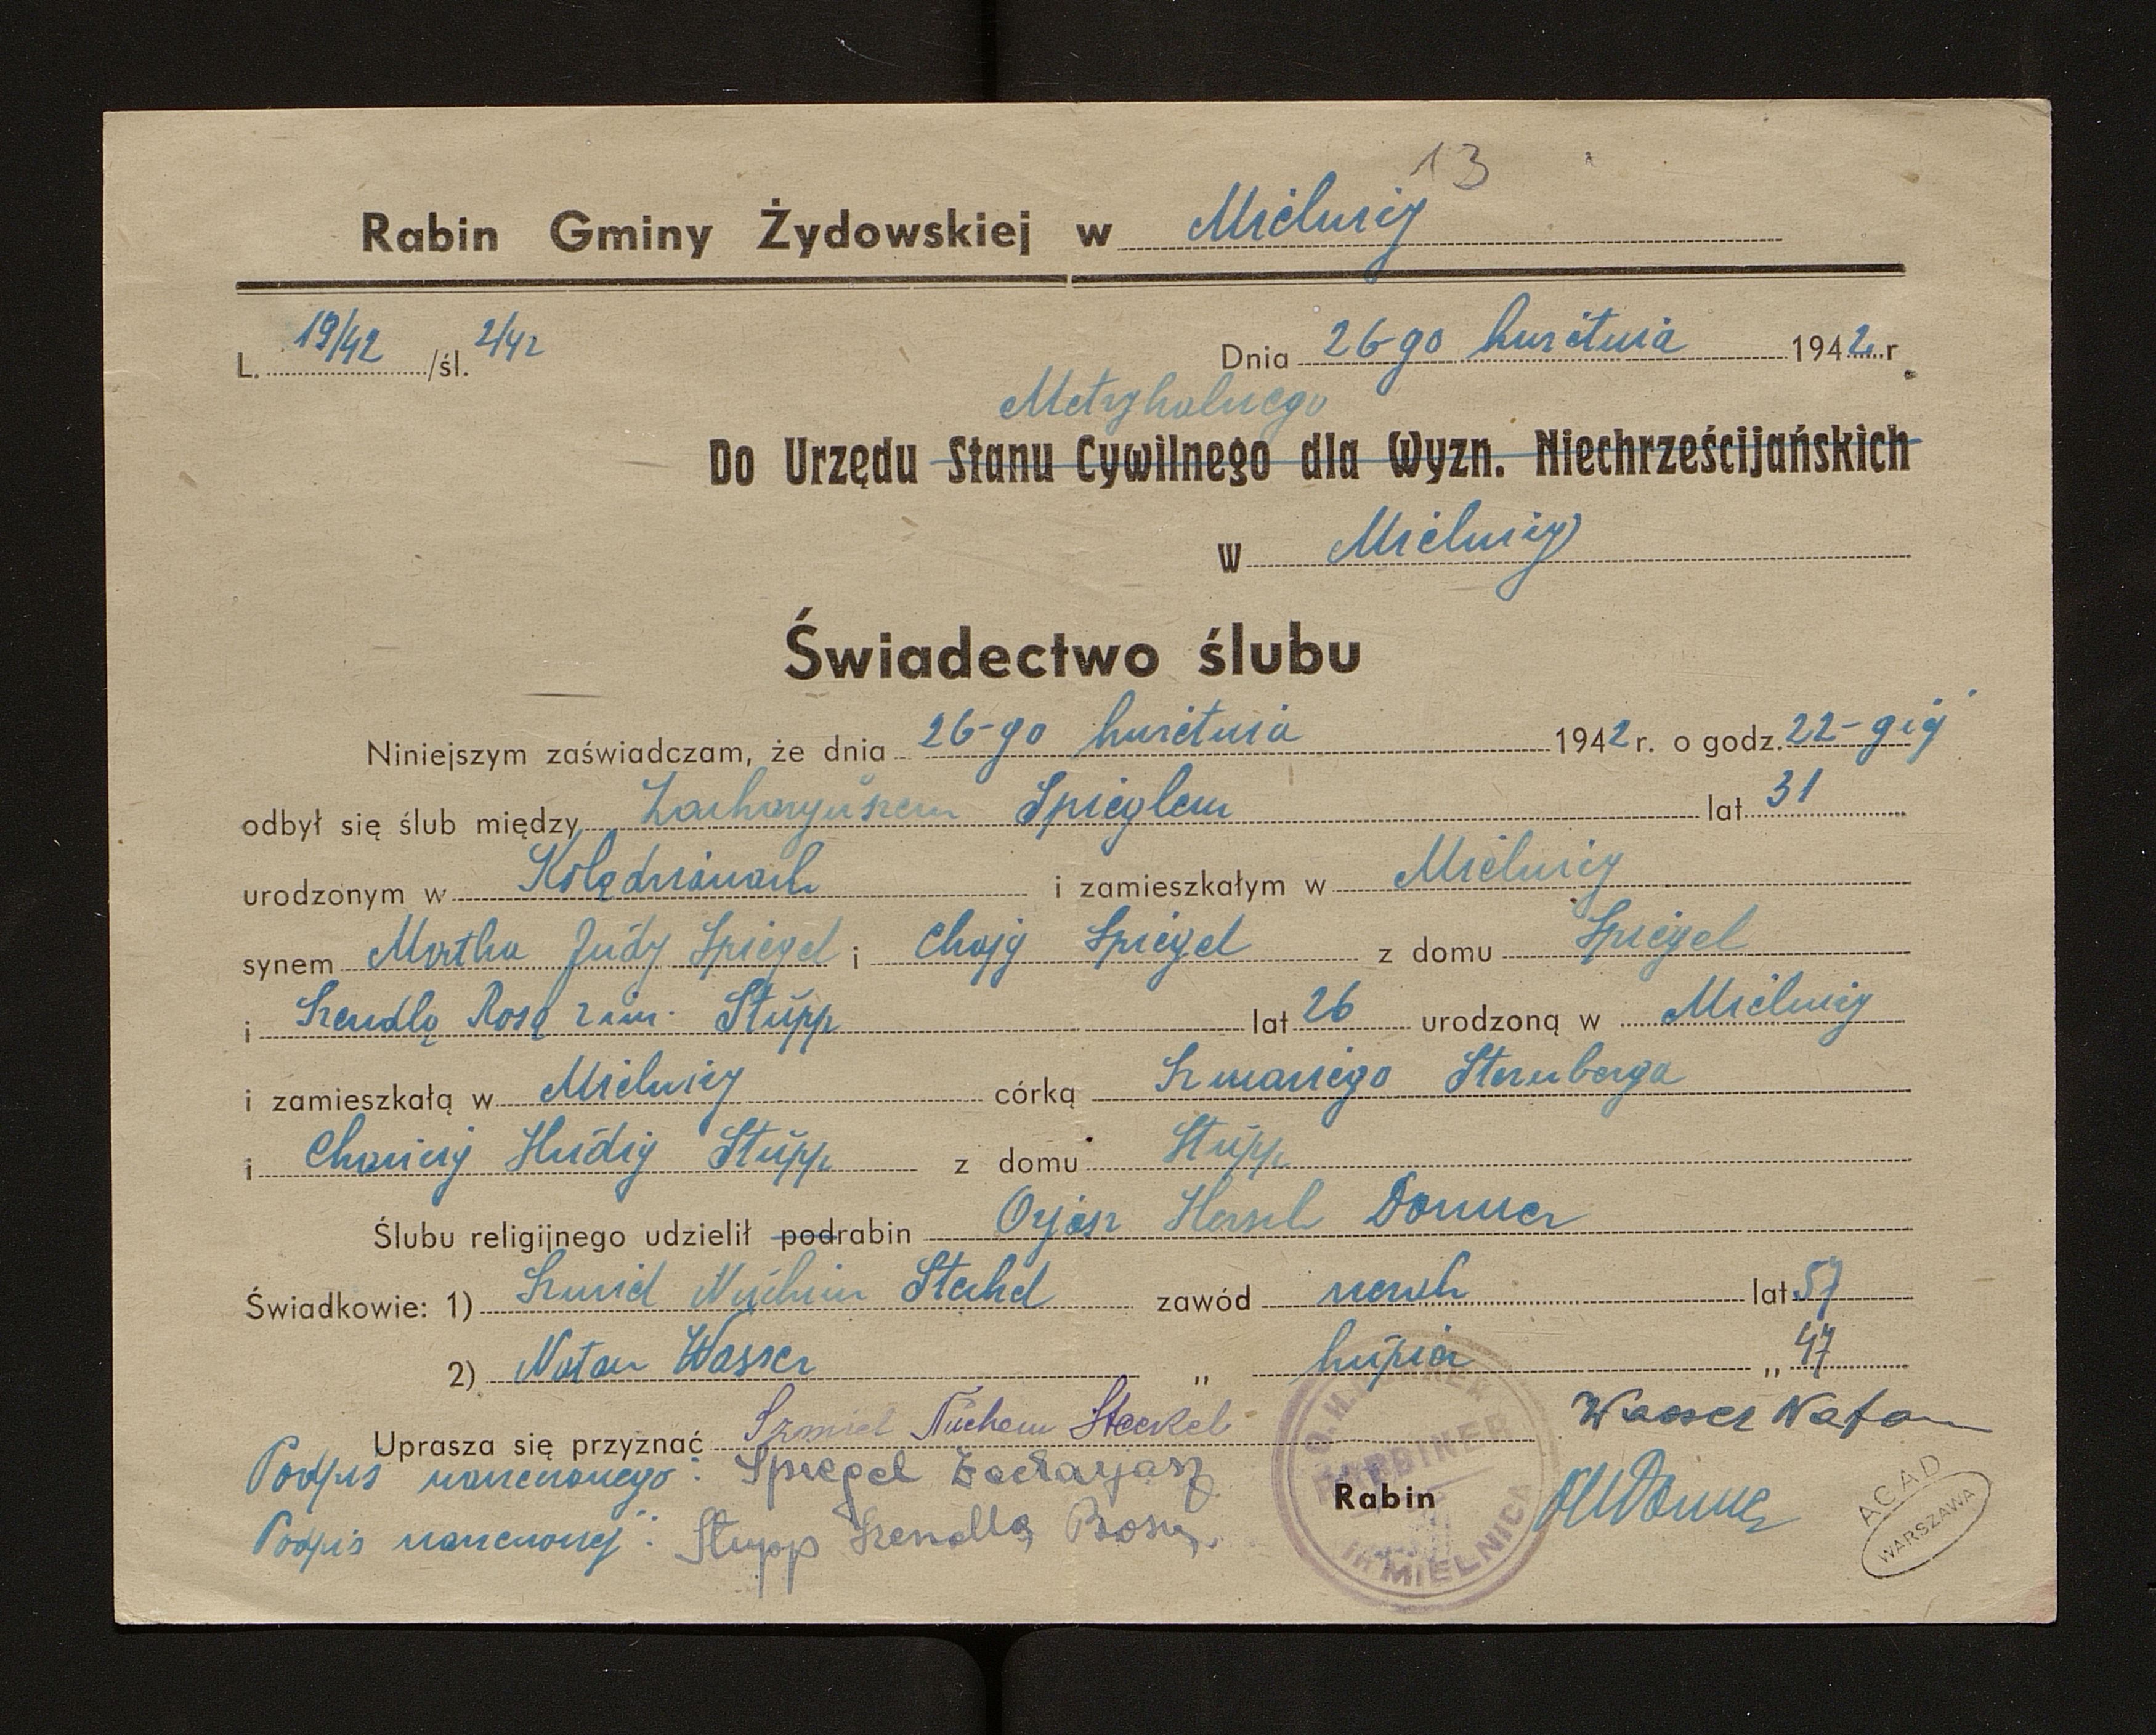 13
Rabin Gminy Żydowskiej w Mielnicy
L. 19/42 /śl. 2/42
Dnia 26-go kwietnia 1942 r
Metrykalnego
Do Urzędu Stanu Cywilnego dla Wyzn. Niechrześcijańskich
w Mielnicy
Świadectwo ślubu
Niniejszym zaświadczam, że dnia 26-go kwietnia 1942 r. o godz. 22-giej
odbył się ślub między Zacharyuszem Spieglem lat 31
urodzonym w Kolędzianach i zamieszkałym w Mielnicy
synem Mortka Judy Spiegel i Chaji Spiegel z domu Spiegel
i Szendlą Rosą Stupp lat 26 urodzoną w Mielnicy
i zamieszkałą w Mielnicy córką Sternberga
i Hudzi Stupp z domu Stupp
Ślubu religijnego udzielił podrabin Hersch Donner
Świadkowie: 1) Szmiel Nuchim Steckel zawód lat 57
2) Natan Wasser „ kupiec „ 47
Uprasza się przyznać Szmiel Nuchem Steckel Wasser Natan
Podpis narzeczonego: Spiegel Zacharjasz
Rabin OHDonner
Podpis narzeczonej: Stupp Szendla Rosa
O. H. DONNER
RABBINER
IN MIELNICA
ACAD
WARSZAWA